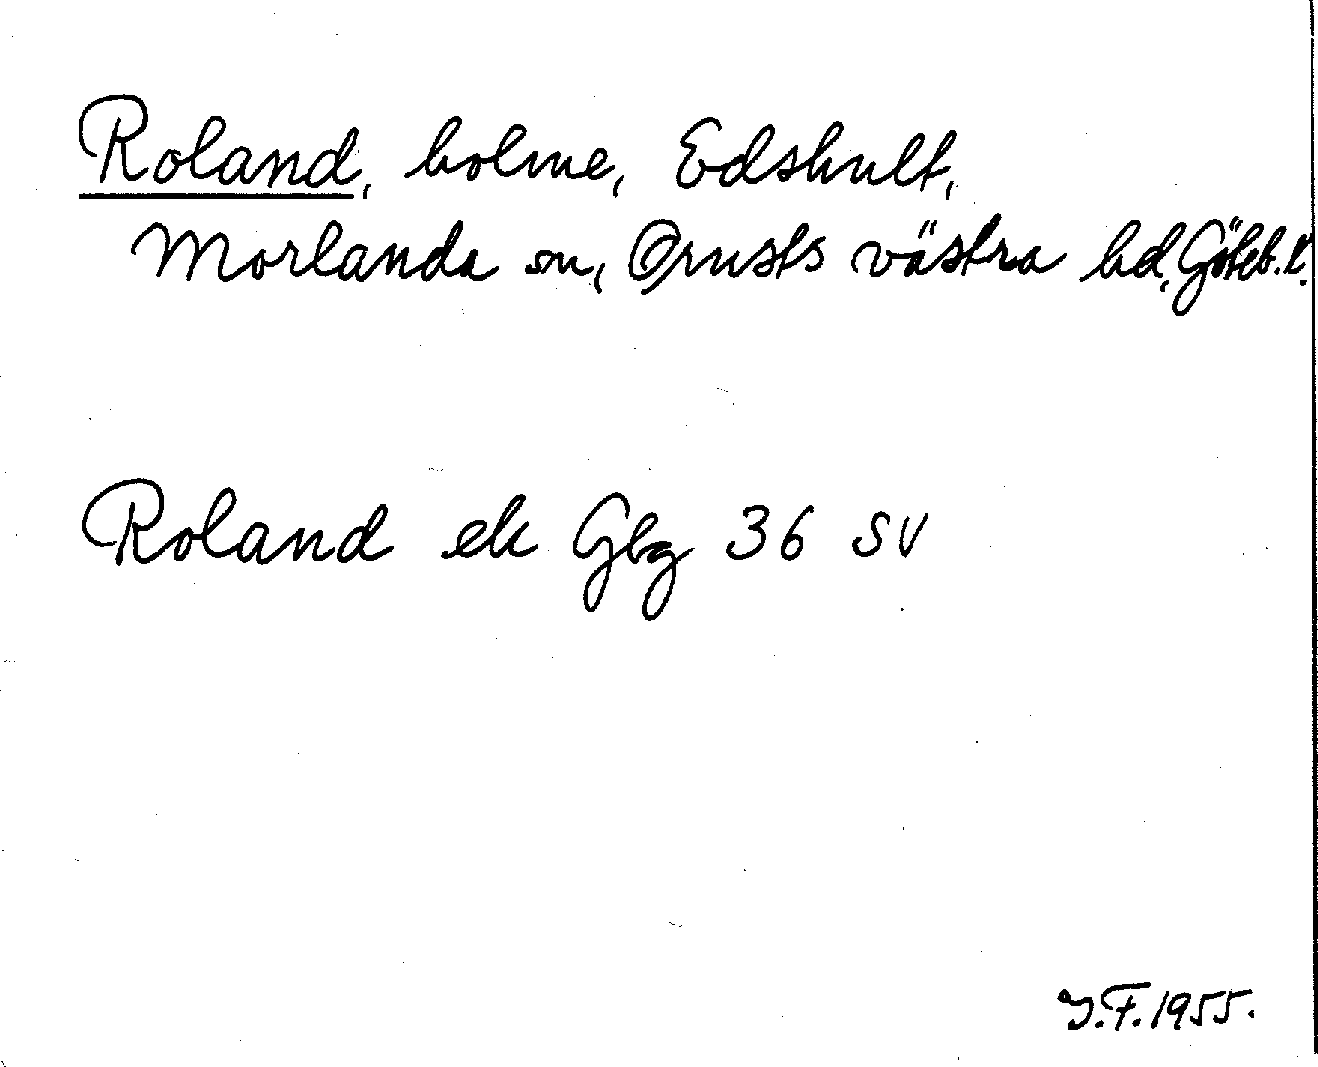 Roland, holme, Edshult,
Morlanda sn, Orusts västra hd, Göteb. l.
Roland ek Gbg 36 SV
I.F. 1955.